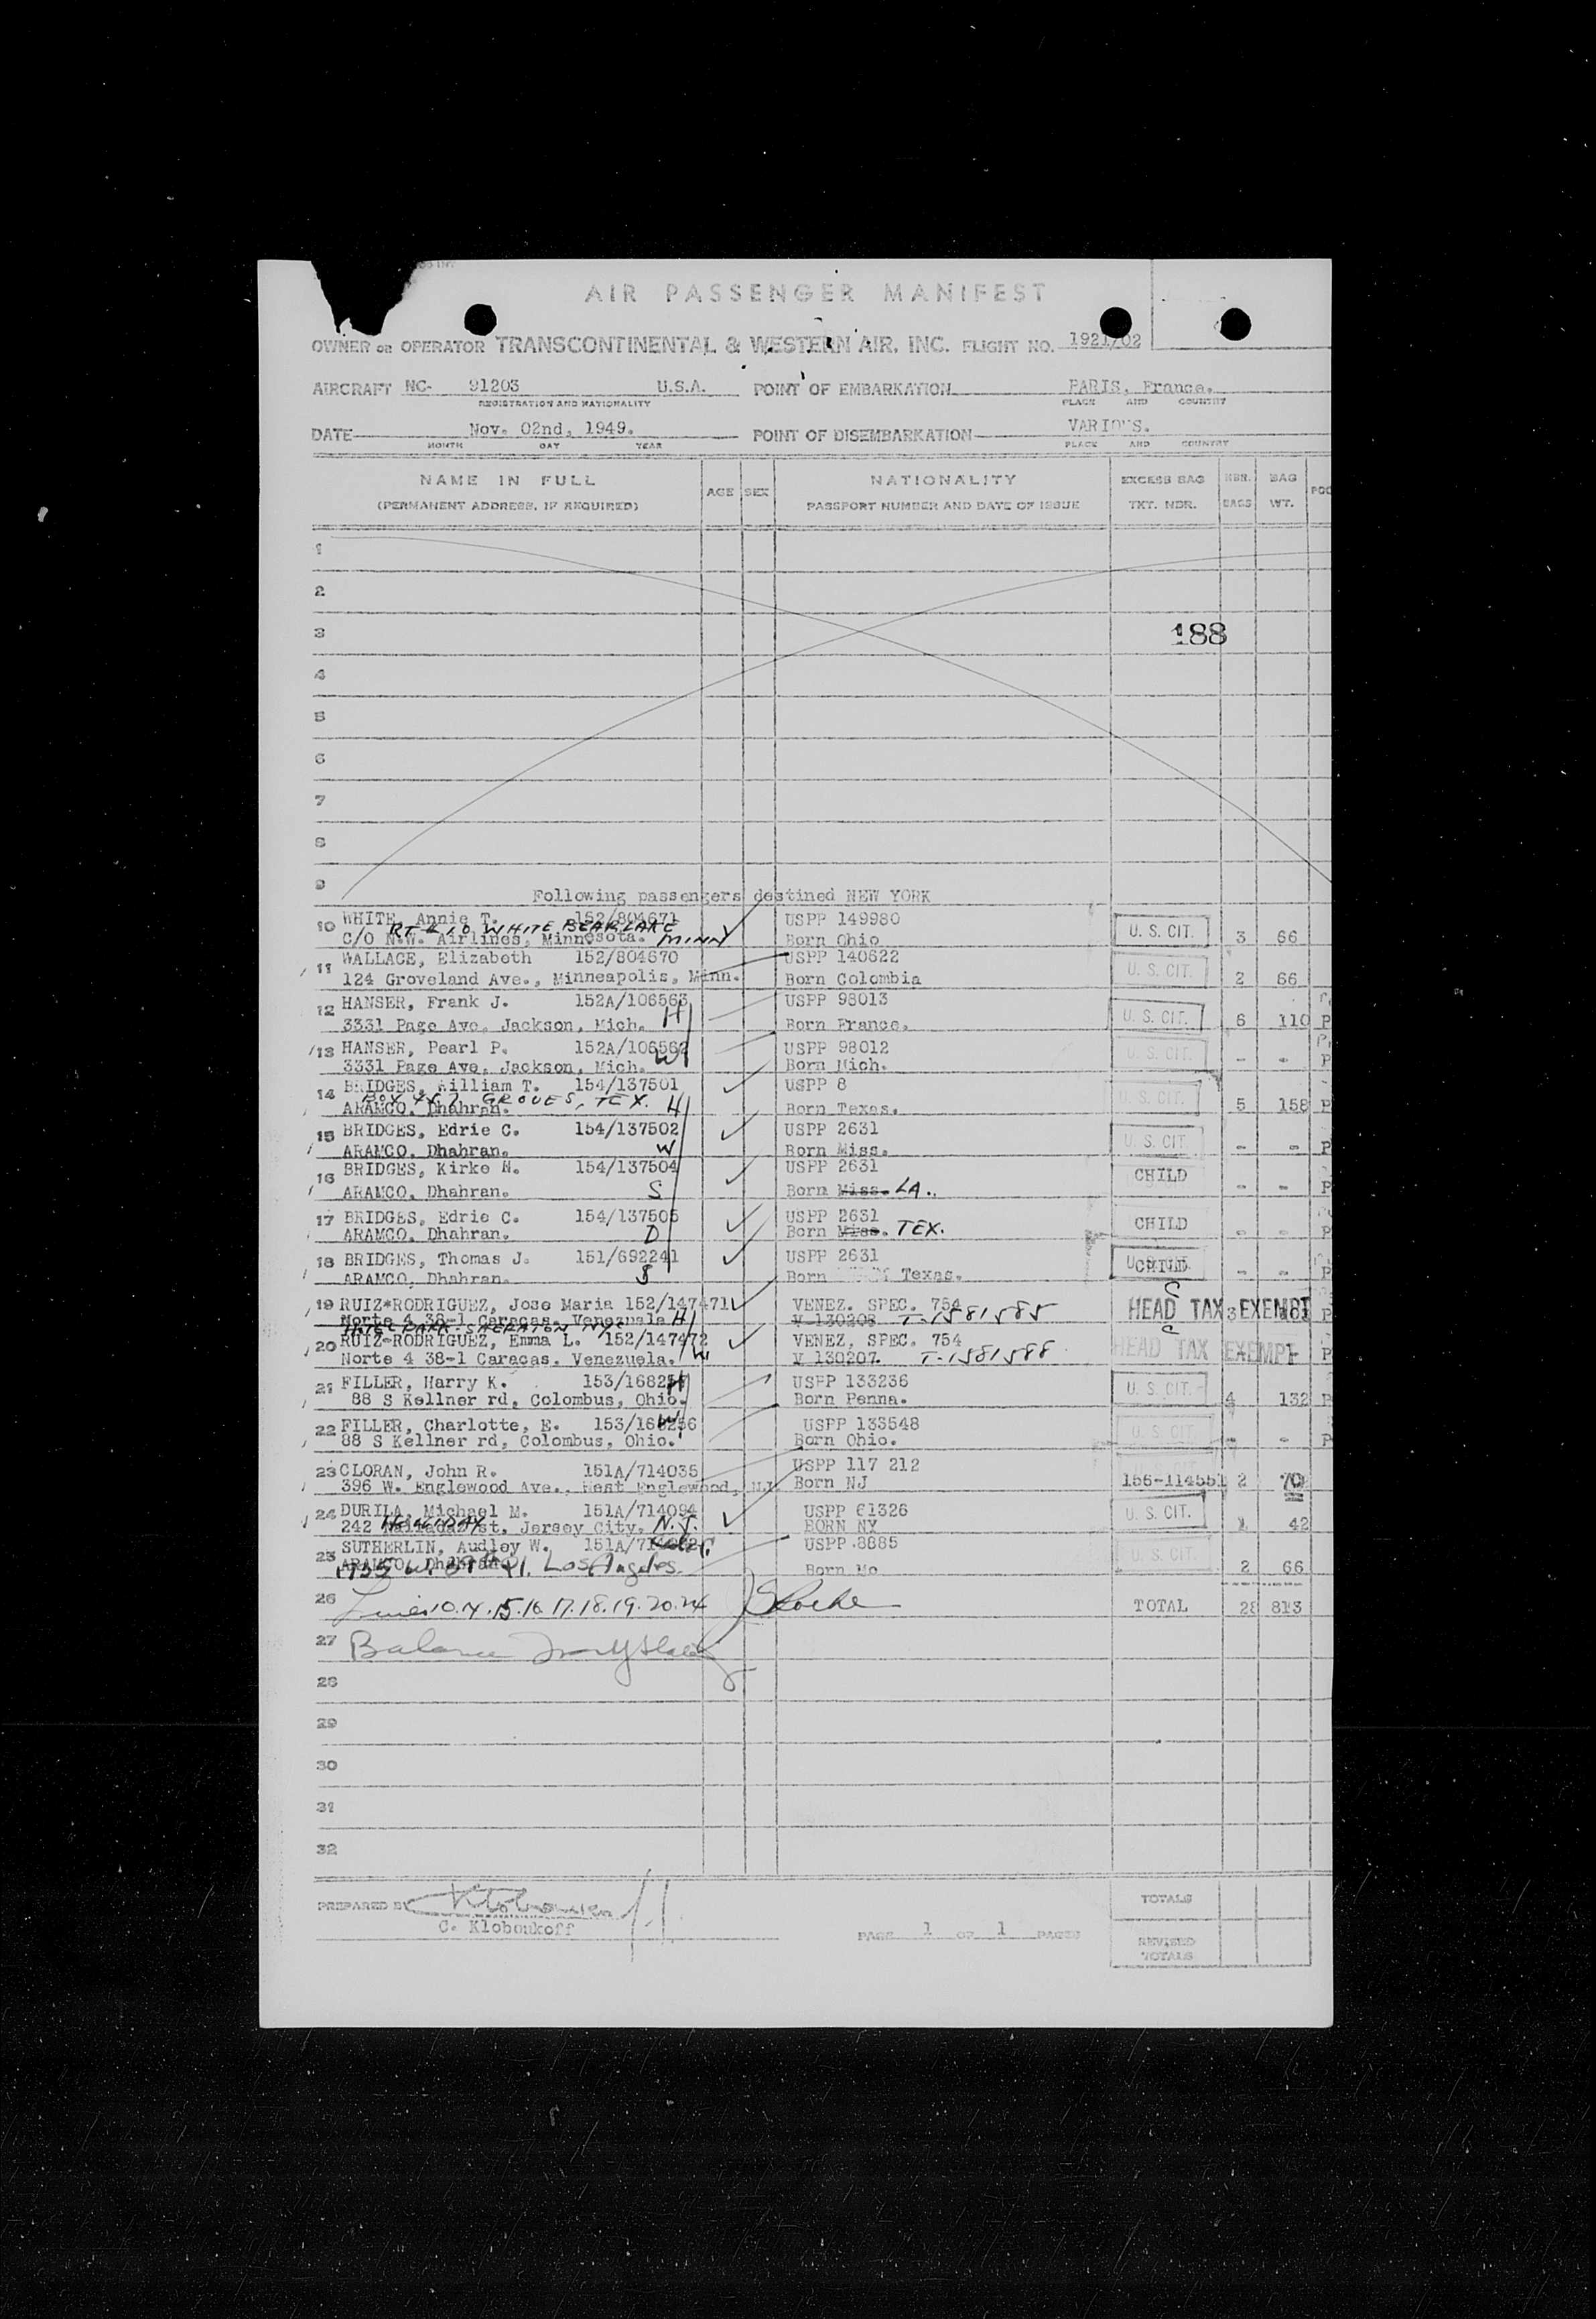 AIR PASSENGER MANIFEST
OWNER OR OPERATOR TRANSCONTINENTAL & WESTERN AIR, INC. FLIGHT NO. 1921/02
AIRCRAFT NC- 91203 U.S.A. POINT OF EMBARKATION PARIS, France.
REGISTRATION AND NATIONALITY PLACE AND COUNTRY
DATE Nov. 02nd, 1949. POINT OF DISEMBARKATION VARIOUS.
MONTH DAY YEAR PLACE AND COUNTRY
NAME IN FULL AGE SEX NATIONALITY EXCESS BAG NBR. BAG
(PERMANENT ADDRESS, IF REQUIRED) PASSPORT NUMBER AND DATE OF ISSUE TKT. NBR. BAGS WT.
1
2
3 188
4
5
6
7
8
9 Following passengers destined NEW YORK
10 WHITE, Annie T. 152/804671 USPP 149980 U. S. CIT. 3 66
RT # 10 WHITE BEAR LAKE MINN
C/O N.W. Airlines, Minnesota. Born Ohio
11 WALLACE, Elizabeth 152/804670 USPP 140622 U. S. CIT. 2 66
124 Groveland Ave., Minneapolis, Minn. Born Colombia
12 HANSER, Frank J. 152A/106563 USPP 98013 U. S. CIT. 6 110 P
3331 Page Ave. Jackson, Mich. H Born France.
13 HANSER, Pearl P. 152A/106562 USPP 98012 U. S. CIT. - - P
3331 Page Ave. Jackson, Mich. W Born Mich.
14 BRIDGES, William T. 154/137501 USPP 8 U. S. CIT. 5 158 P
BOX 467 GROVES, TEX. H
ARAMCO. Dhahran. Born Texas.
15 BRIDGES, Edrie C. 154/137502 USPP 2631 U. S. CIT. - - P
ARAMCO. Dhahran. W Born Miss.
16 BRIDGES, Kirke M. 154/137504 USPP 2631 CHILD - - P
ARAMCO. Dhahran. S Born Miss. LA.
17 BRIDGES, Edrie C. 154/137505 USPP 2631 CHILD - - P
ARAMCO. Dhahran. D Born Miss. TEX.
18 BRIDGES, Thomas J. 151/692241 USPP 2631 U. S. CIT. CHILD - - P
ARAMCO. Dhahran. S Born Texas.
19 RUIZ*RODRIGUEZ, Jose Maria 152/147471 VENEZ. SPEC. 754 HEAD TAX EXEMPT 3 P
Norte 4 38-1 Caracas. Venezuela H V 130208 T-1581585
HOTEL PARK-SHERATON NYC
20 RUIZ-RODRIGUEZ, Emma L. 152/147472 VENEZ. SPEC. 754 HEAD TAX EXEMPT P
Norte 4 38-1 Caracas. Venezuela. W V 130207. T-1581588
21 FILLER, Harry K. USPP 133236 U. S. CIT. 4 132 P
88 S Kellner rd, Colombus, Ohio. H Born Penna.
22 FILLER, Charlotte, E. W USPP 133548 U. S. CIT. - - P
88 S Kellner rd, Colombus, Ohio. Born Ohio.
23 CLORAN, John R. 151A/714035 USPP 117 212 156-114551 2 70
396 W. Englewood Ave., West Englewood, NJ. Born NJ
24 DURILA, Michael M. 151A/714094 USPP 61326 U. S. CIT. 1 42
242 st, Jersey City, N.J. BORN NY
25 SUTHERLIN, Audley W. USPP 8885 U. S. CIT. 2 66
ARAMCO. Dhahran. Los Angeles. Calif. Born Mo
26 Lines 10.14.15.16.17.18.19.20.24 TOTAL 28 813
27 Balance
28
29
30
31
32
PREPARED BY
C. Kloboukoff
PAGE 1 OF 1 PAGES
TOTALS
REVISED TOTALS